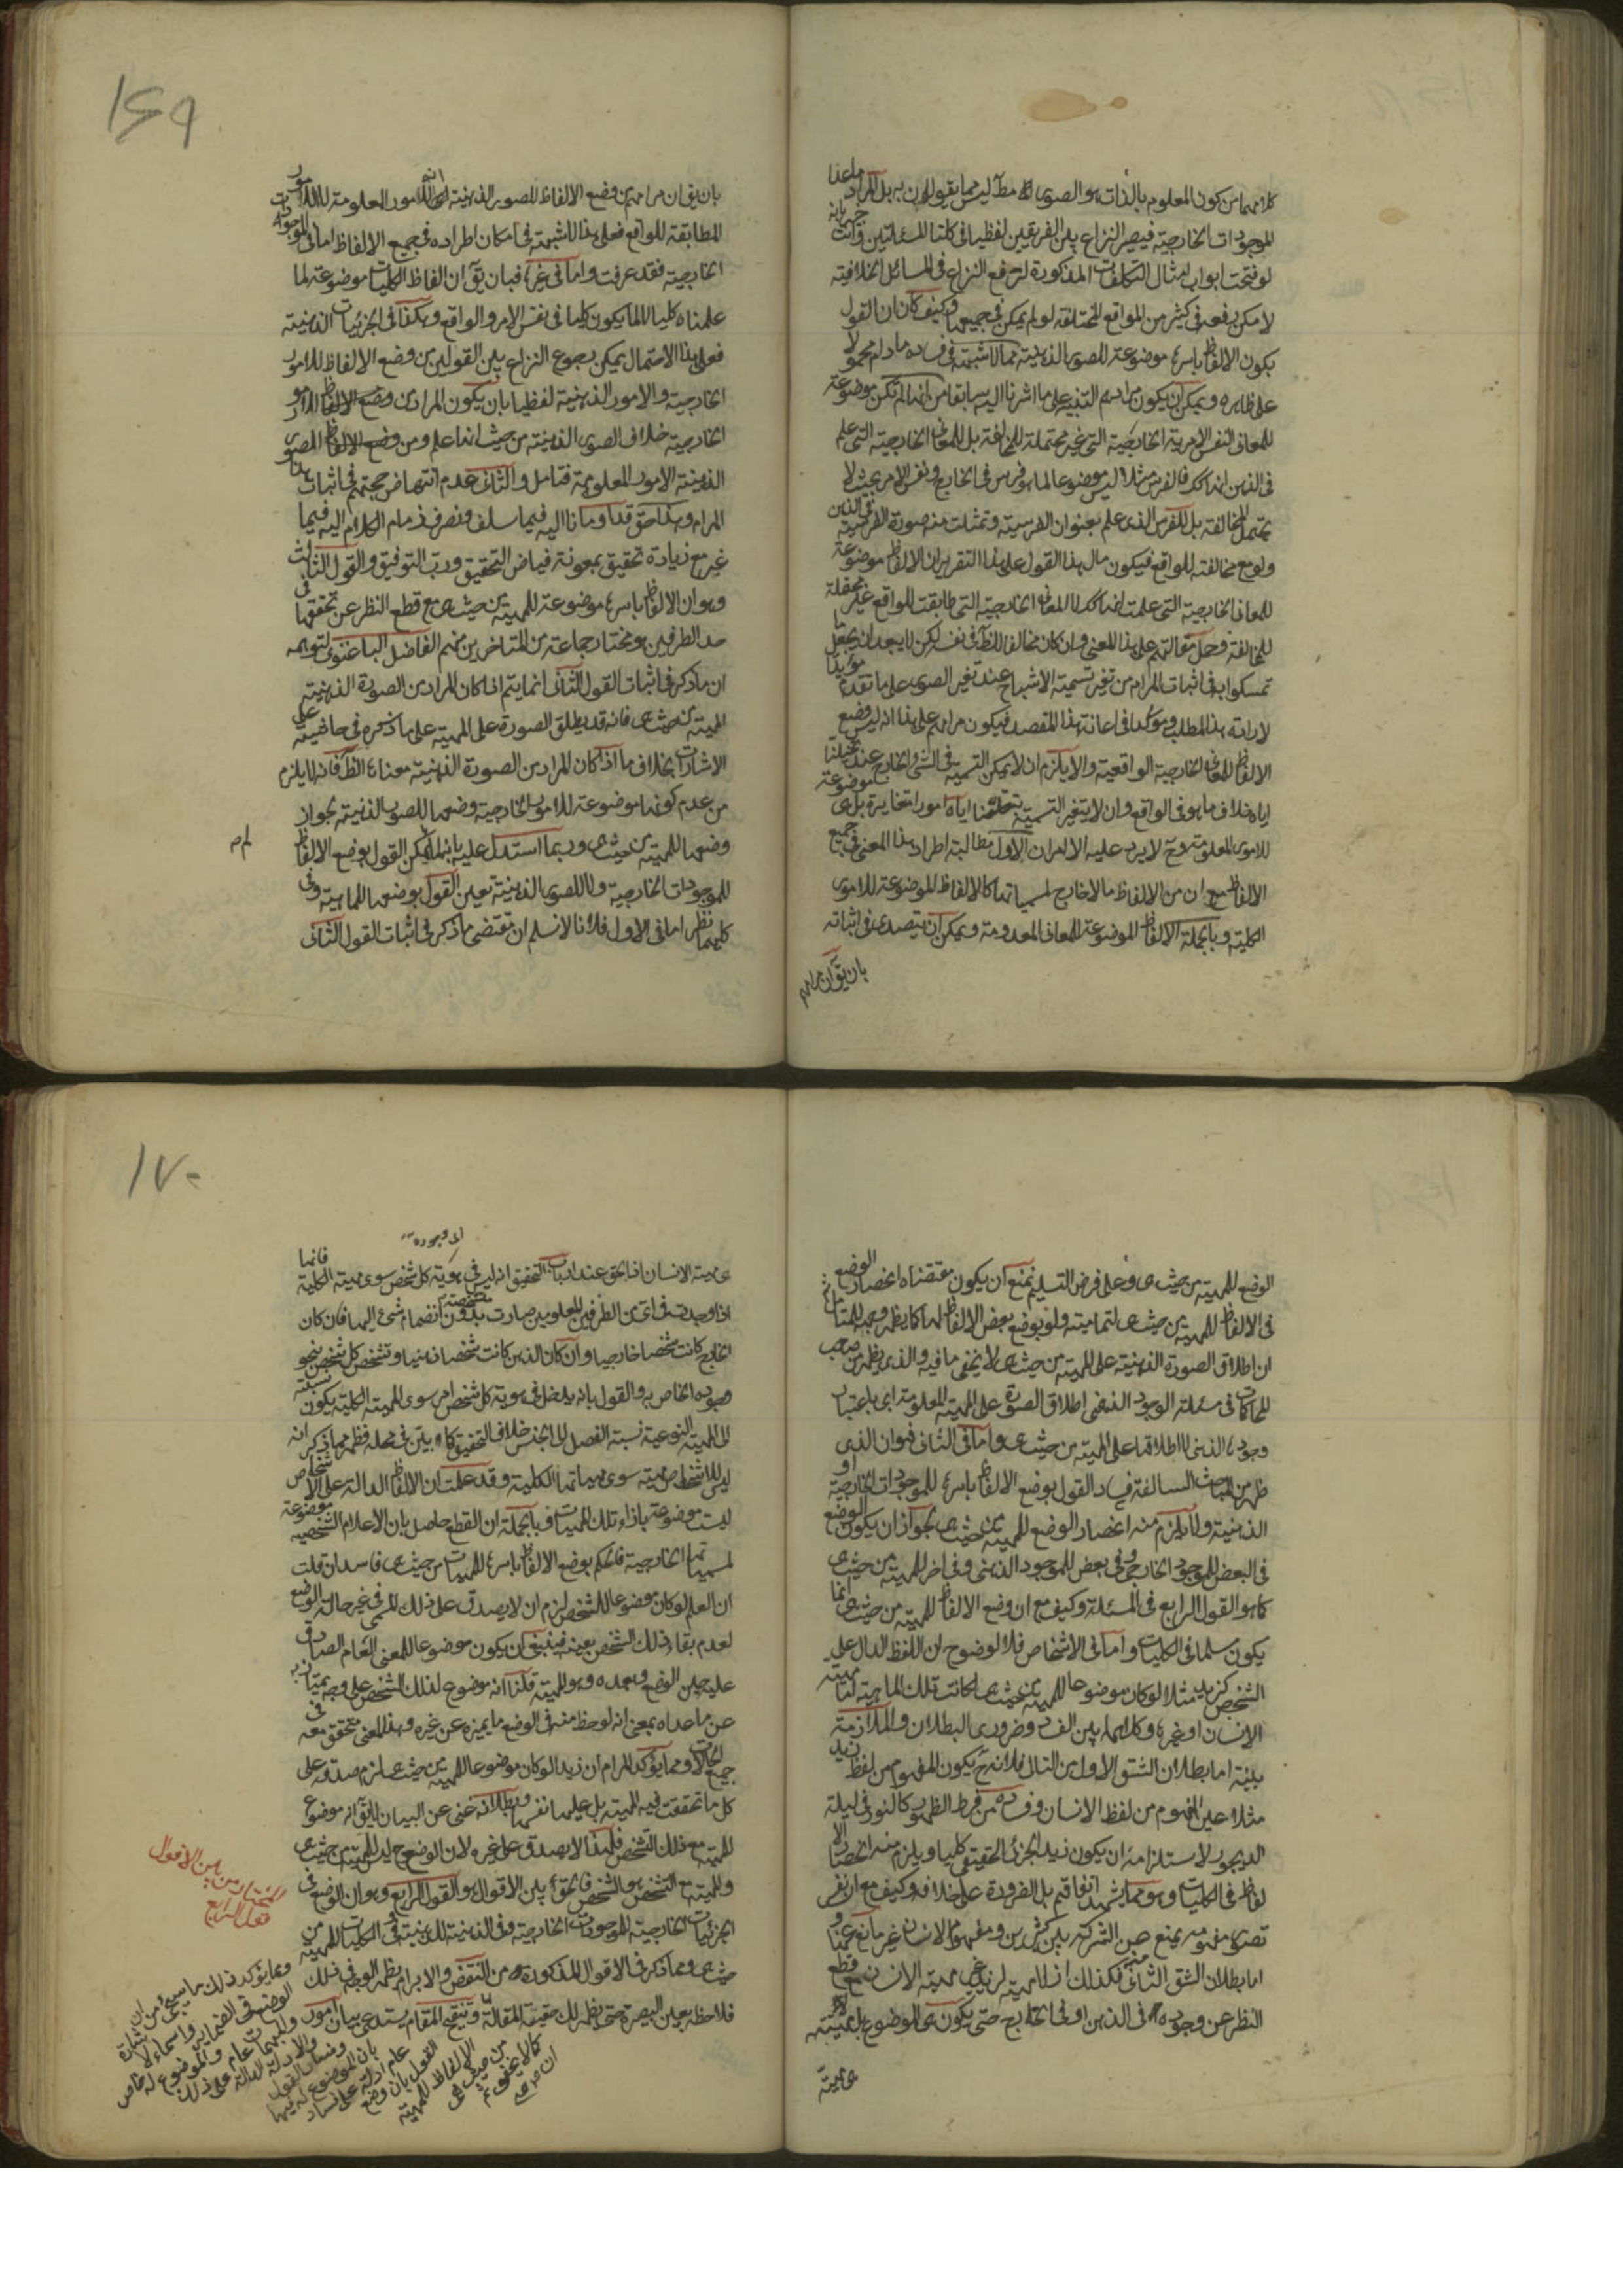 كلامهما من كون المعلوم بالذات هو الصورة مط ليس مما يقولون به بل المراد ماعدا
الموجودات الخارجية فيصير النزاع بين الفريقين لفظيا فى كلتا المسئلتين وانت خبير بانه
لو فتحت ابواب امثال التكلفات المذكورة لارتفع النزاع فى المسائل الخلافية
لامكن رفعه فى كثير من المواقع المختلفة لو لم يمكن فى جميعها وكيف كان ان القول
بكون الالفاظ باسرها موضوعة للصور الذهنية مما لا شبهة فى فساده مادام محمولا
على ظاهره ويمكن ان يكون مرادهم التنبيه على ما اشرنا اليه سابقا من انها لم تكن موضوعة
للمعانى النفس الامرية الخارجية التى غير محتملة للمخالفة بل للمعانى الخارجية التى علم
فى الذهن انها كك فالفرس مثلا ليس موضوعا لما هو فرس فى الخارج ونفس الامر بحيث لا
يحتمل المخالفة بل للفرس الذى علم بعنوان الفرسية وتمثلت منه صورة الفرسية فى الذهن
ولو مع مخالفته للواقع فيكون مال هذا القول على هذا التقرير ان الالفاظ موضوعة
للمعانى الخارجية التى علمت انها كك لا المعانى الخارجية التى طابقت للواقع غير محتملة
للمخالفة وحمل مقالتهم على هذا المعنى وان كان مخالفا للظ فى نفسه لكن لا يبعد ان يجعل ما
تمسكوا به فى اثبات المرام من تغير تسمية الاشباح عند تغير الصور على ما تقدم مؤيدا
لارادة هذا المطلب ومؤكدا فى اعانة هذا المقصد فيكون مرامهم على هذا انه ليس وضع
الالفاظ للمعانى الخارجية الواقعية والا يلزم ان لا يمكن التسمية فى الشئ الخارج عند تخيلنا
اياه خلاف ما هو فى الواقع وان لا يتغير التسمية بتخيلنا اياه امورا متغايرة بل هى موضوعة
للامور المعلومة وح لا يرد عليه الا امران الاول مطالبة اطراد هذا المعنى فى جميع
الالفاظ مع ان من الالفاظ ما لا خارج لمسمياتها كالالفاظ الموضوعة للامور
الكلية وبالجملة الالفاظ الموضوعة للمعانى المعدومة ويمكن ان يتصدى فى اثباته
بان يق ان مرامهم
١٦٩
بان يق ان مرامهم من وضع الالفاظ للصور الذهنية انه للامور المعلومة لا للامور
المطابقة للواقع فعلى هذا لا شبهة فى امكان اطراده فى جميع الالفاظ اما فى الموجودات
الخارجية فقد عرفت واما فى غيرها فبان يق ان الفاظ الكليات موضوعة لما
علمناه كليا لا لما يكون كليا فى نفس الامر والواقع وهكذا فى الجزئيات الذهنية
فعلى هذا الاحتمال يمكن رجوع النزاع بين القولين من وضع الالفاظ للامور
الخارجية والامور الذهنية لفظيا بان يكون المراد من وضع الالفاظ للامور
الخارجية خلاف الصور الذهنية من حيث انها علم ومن وضع الالفاظ للصور
الذهنية الامور المعلومة فتامل والثانى عدم انتهاض حجتهم فى اثبات هذا
المرام وهذا حق قد اومأنا اليه فيما سلف ونصرف زمام الكلام اليه فيما
غبر مع زيادة تحقيق بمعونة فياض التحقيق ورب التوفيق والقول الثالث
وهو ان الالفاظ باسرها موضوعة للمهية من حيث هى مع قطع النظر عن تحققها فى
احد الطرفين هو مختار جماعة من المتاخرين منهم الفاضل الباغنوى لتوهمه
ان ما ذكر فى اثبات القول الثانى انما يتم اذا كان المراد من الصورة الذهنية
المهية من حيث هى فانه قد يطلق الصورة على المهية على ما ذكره فى حاشيته على
الاشارات بخلاف ما اذا كان المراد من الصورة الذهنية معناها الظ فانه لا يلزم
من عدم كونها موضوعة للامور الخارجية وضعها للصور الذهنية لجواز
وضعها للمهية من حيث هى وربما استدل عليه بانه لما لم يكن القول بوضع الالفاظ
للموجودات الخارجية ولا للصور الذهنية تعين القول بوضعها للماهية وفى
كليهما نظر اما فى الاول فلانا لا نسلم ان مقتضى ما ذكر فى اثبات القول الثانى
الوضع للمهية من حيث هى وعلى فرض التسليم نمنع ان يكون مقتضاه انحصار الوضع
فى الالفاظ للمهية من حيث هى لتماميته ولو بوضع بعض الالفاظ لها كما يظهر وجهه للمتامل ثم
ان اطلاق الصورة الذهنية على المهية من حيث هى لا يخفى ما فيه والذى يظهر من صاحب
المحاكمات فى مسئلة الوجود الذهنى اطلاق الصورة على المهية المعلومة اى باعتبار
وجودها الذهنى لا اطلاقها على المهية من حيث هى واما فى الثانى فهو ان الذى
ظهر من المباحث السالفة فساد القول بوضع الالفاظ باسرها للموجودات الخارجية او
الذهنية ولا يلزم منه انحصار الوضع للمهية من حيث هى لجواز ان يكون الوضع
فى البعض للموجود الخارجى وفى بعض للموجود الذهنى وفى اخر للمهية من حيث هى
كما هو القول الرابع فى المسئلة وكيف مع ان وضع الالفاظ للمهية من حيث هى انما
يكون سلما فى الكليات واما فى الاشخاص فلا لوضوح ان اللفظ الدال على
الشخص كزيد مثلا لو كان موضوعا للمهية من حيث هى لكانت تلك الماهية اما مهية
الانسان او غيره وكلاهما بين الفساد وضرورى البطلان والملازمة
بينة اما بطلان الشق الاول من التالى فلانه ح يكون المفهوم من لفظ زيد
مثلا عين المفهوم من لفظ الانسان وفساده من فرط الظهور كالنور فى ليلة
الديجور لاستلزامه ان يكون زيد الجزئى الحقيقى كليا ويلزم منه انحصار الا
لفاظ فى الكليات وهو مما يشهد اتفاقهم بل الضرورة على خلافه وكيف مع ان نفس
تصور مفهومه يمنع عن الشركة بين كثيرين ومفهوم الانسان غير مانع عنها و
اما بطلان الشق الثانى منه فكذلك اذ لا مهية لزيد غير مهية الانسان مع قطع
النظر عن وجوده فى الذهن او فى الخارج حتى يكون هى الموضوع له لا مهيته
هى مهية
١٧٠
هى مهية الانسان اذ الحق عند ارباب التحقيق انه ليس فى هوية كل شخص سوى مهيته الكلية فانها
اذا وجدت فى اى من الطرفين المعلومين صارت متشخصة بدون انضمام شئ اليها فان كان
الخارج كانت شخصا خارجيا وان كان الذهن كانت شخصا ذهنيا وتشخص كل شخص بنحو
وجوده الخاص به والقول بانه يدخل فى هوية كل شخص امر سوى المهية الكلية يكون نسبته
الى المهية النوعية نسبة الفصل الى الجنس خلاف التحقيق كما بين فى محله فظهر مما ذكر انه
ليس للاشخاص مهية سوى مهياتها الكلية وقد علمت ان الالفاظ الدالة على الاشخاص
ليست موضوعة بازاء تلك المهيات وبالجملة ان القطع حاصل بان الاعلام الشخصية موضوعة
لمسمياتها الخارجية فالحكم بوضع الالفاظ باسرها للمهيات من حيث هى فاسد ان قلت
ان العلم لو كان موضوعا للشخص لزم ان لا يصدق على ذلك المسمى فى غير حالة الوضع
لعدم بقاء ذلك الشخص بعينه فينبغى ان يكون موضوعا للمعنى العام الصادق
عليه حين الوضع وبعده وهو المهية قلنا انه موضوع لذلك الشخص على وجه يمتاز به
عن ماعداه بمعنى انه لوحظ منه فى الوضع ما يميزه عن غيره وهذا المعنى متحقق معه فى
جميع الحالات ومما يؤكد المرام ان زيدا لو كان موضوعا للمهية من حيث هى لزم صدقه على
كل ما تحققت فيه المهية بل عليها نفسها وبطلانه غنى عن البيان لا يق انه موضوع
للمهية مع ذلك التشخص فلهذا لا يصدق على غيره لان الوضع ح ليس للمهية من حيث هى
وللمهية مع التشخص هو الشخص فالحق من بين الاقوال هو القول الرابع وهو ان الوضع فى
الجزئيات الخارجية للموجودات الخارجية وفى الذهنية للذهنية وفى الكليات للمهية من
حيث هى ومما ذكر فى الاقوال المذكورة من النقض والابرام يظهر الوجه فى ذلك
فلاحظه بعين البصيرة حتى يظهر لك حقيقة المقالة وتنقيح المقام يستدعى بيان امور
المختار من بين الاقوال
قول الرابع
ومما يؤكد ذلك ما سيجئ من ان
الوضع فى الضماير واسماء الاشارة
والمبهمات عام والموضوع له خاص
والادلة الدالة على ذلك
وفساد القول
بان الموضوع له فيها
عام ادلة على فساد
القول بان وضع
الالفاظ للمهية
من حيث هى
كما لا يخفى